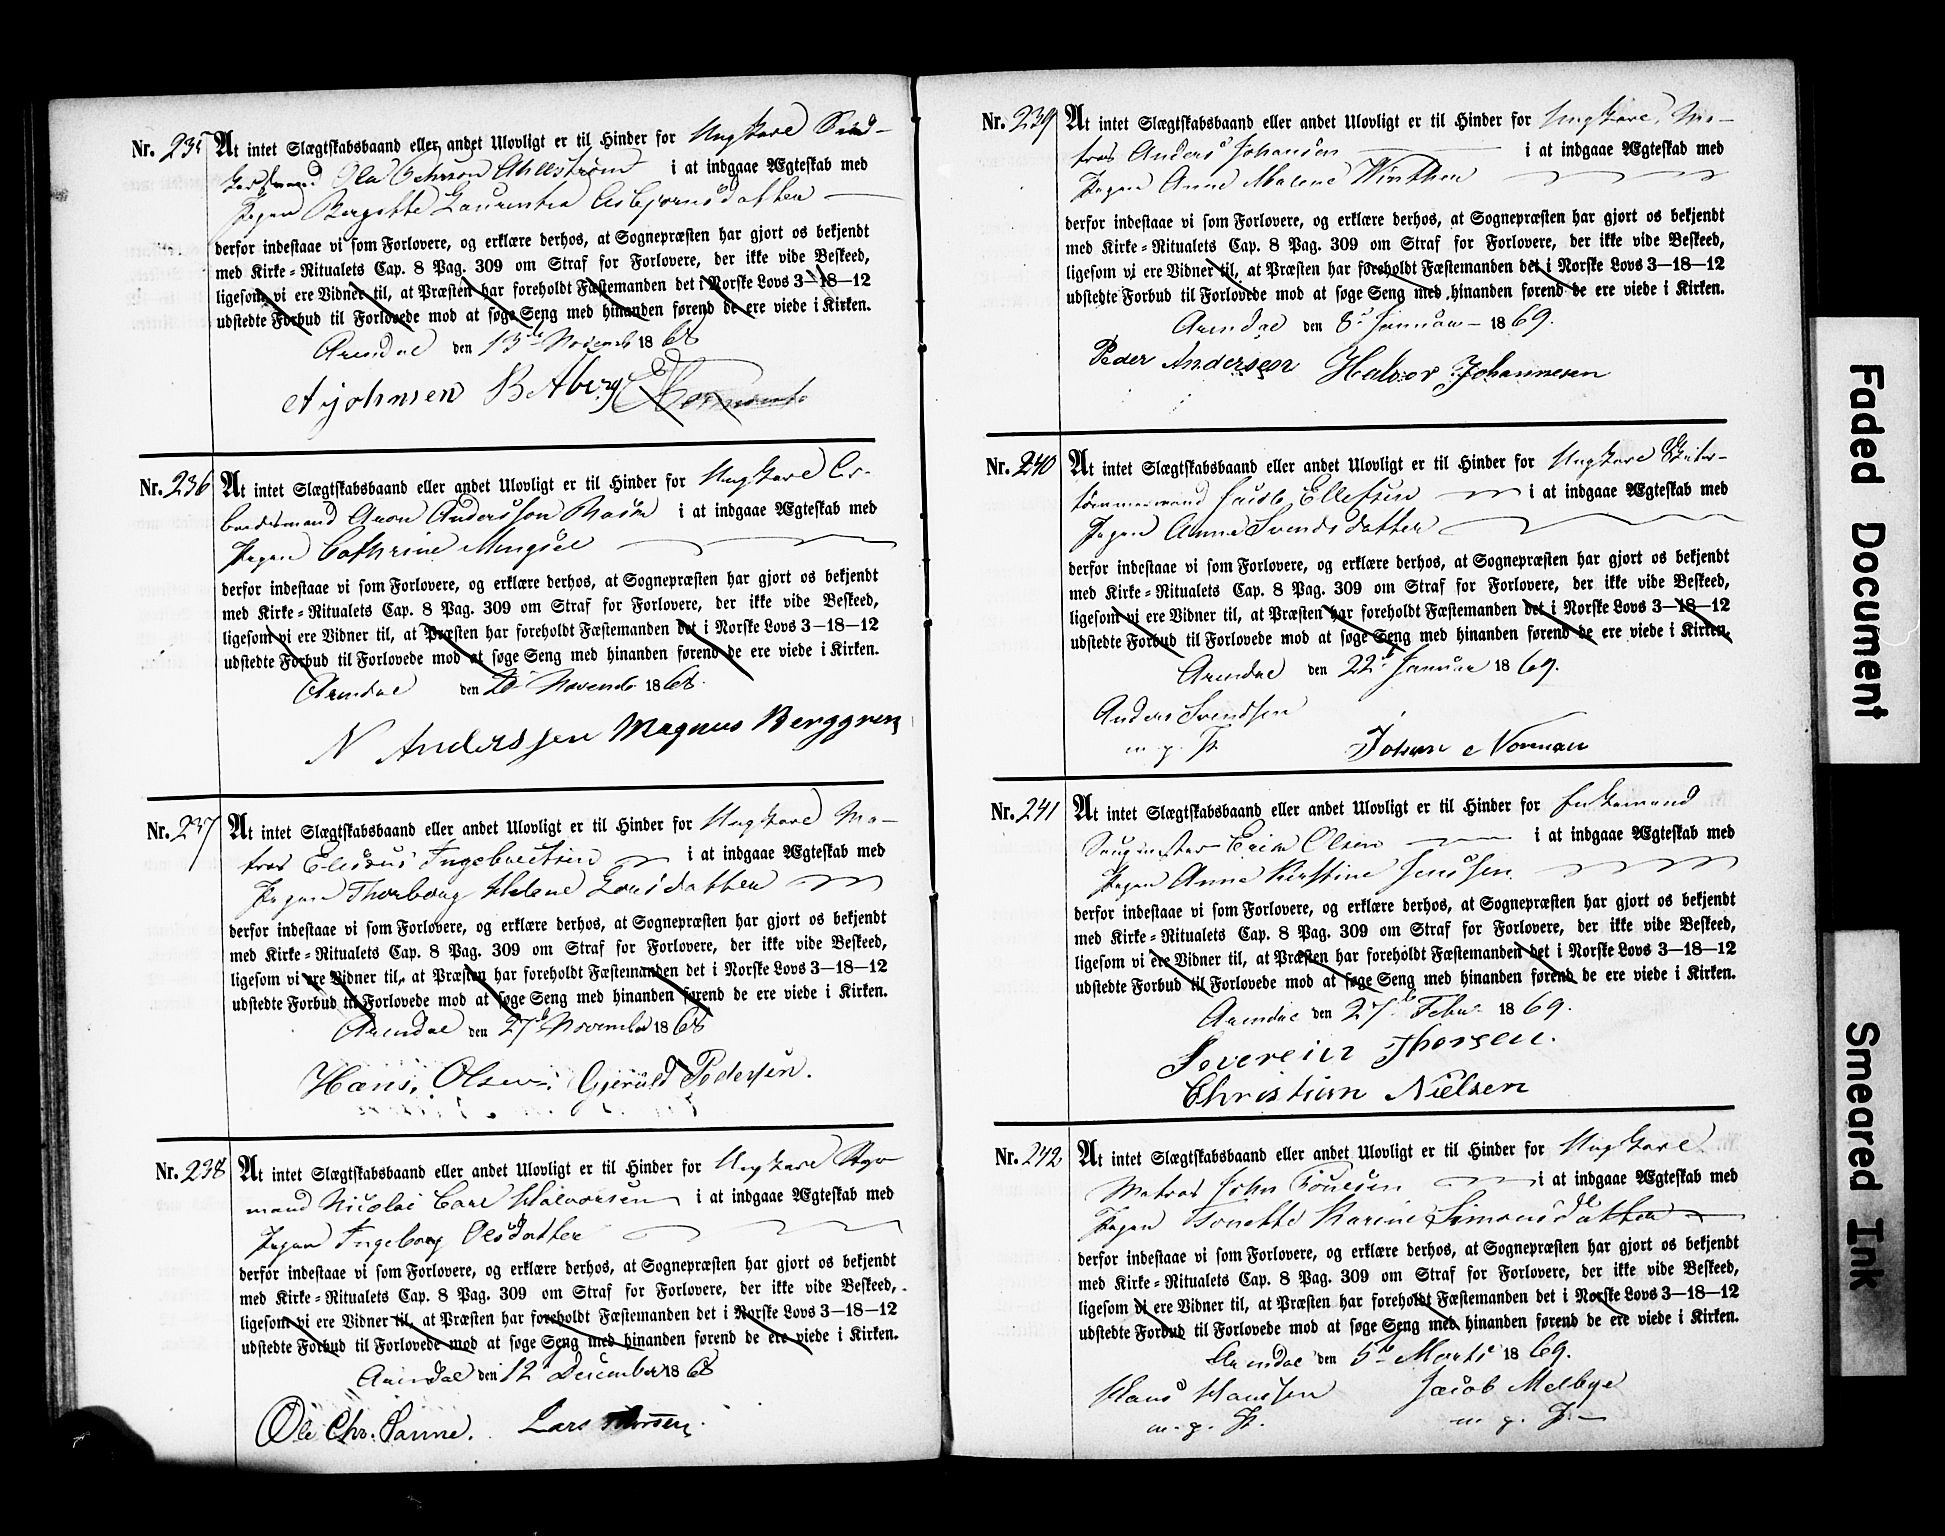 Nr. 235 At intet Slægtskabsbaand eller andet Ulovligt er til Hinder for Ungkarl
Ola i at indgaae Ægteskab med
Pigen Bergitte Laurentia Asbjørnsdatter
derfor indestaae vi som Forlovere, og erklære derhos, at Sognepræsten har gjort os bekjendt
med Kirke-Ritualets Cap. 8 Pag. 309 om Straf for Forlovere, der ikke vide Beskeed,
ligesom vi ere Vidner til, at Præsten har foreholdt Fæstemanden det i Norske Lovs 3—18—12
udstedte Forbud til Forlovede mod at søge Seng med hinanden førend de ere viede i Kirken.
Arendal den 13de Novemb 1868
A Johnsen B. Aberg
Nr. 236 At intet Slægtskabsbaand eller andet Ulovligt er til Hinder for Ungkarl Ar-
beidsmand Aron Andersson i at indgaae Ægteskab med
Pigen Cathrine
derfor indestaae vi som Forlovere, og erklære derhos, at Sognepræsten har gjort os bekjendt
med Kirke-Ritualets Cap. 8 Pag. 309 om Straf for Forlovere, der ikke vide Beskeed,
ligesom vi ere Vidner til, at Præsten har foreholdt Fæstemanden det i Norske Lovs 3—18—12
udstedte Forbud til Forlovede mod at søge Seng med hinanden førend de ere viede i Kirken.
Arendal den Novemb 1868.
N Anderssen Magnus Berggren
Nr. 237 At intet Slægtskabsbaand eller andet Ulovligt er til Hinder for Ungkarl Ma-
tros Elisæus Ingebretsen i at indgaae Ægteskab med
Pigen Thorborg Helene Larsdatter
derfor indestaae vi som Forlovere, og erklære derhos, at Sognepræsten har gjort os bekjendt
med Kirke-Ritualets Cap. 8 Pag. 309 om Straf for Forlovere, der ikke vide Beskeed,
ligesom vi ere Vidner til, at Præsten har foreholdt Fæstemanden det i Norske Lovs 3—18—12
udstedte Forbud til Forlovede mod at søge Seng med hinanden førend de ere viede i Kirken.
Arendal den 27de November 1868
Hans Olsen. Gjeruld Pedersen.
Nr. 238 At intet Slægtskabsbaand eller andet Ulovligt er til Hinder for Ungkarl
mand Nicolai Carl Halvorsen i at indgaae Ægteskab med
Pigen Ingeborg Olsdatter
derfor indestaae vi som Forlovere, og erklære derhos, at Sognepræsten har gjort os bekjendt
med Kirke-Ritualets Cap. 8 Pag. 309 om Straf for Forlovere, der ikke vide Beskeed,
ligesom vi ere Vidner til, at Præsten har foreholdt Fæstemanden det i Norske Lovs 3—18—12
udstedte Forbud til Forlovede mod at søge Seng med hinanden førend de ere viede i Kirken.
Arendal den 12 December 1868
Ole Chr. Sanne. Lars
Nr. 239 At intet Slægtskabsbaand eller andet Ulovligt er til Hinder for Ungkarl, Ma-
tros Anders Johansen i at indgaae Ægteskab med
Pigen Anne Malene Winther
derfor indestaae vi som Forlovere, og erklære derhos, at Sognepræsten har gjort os bekjendt
med Kirke-Ritualets Cap. 8 Pag. 309 om Straf for Forlovere, der ikke vide Beskeed,
ligesom vi ere Vidner til, at Præsten har foreholdt Fæstemanden det i Norske Lovs 3—18—12
udstedte Forbud til Forlovede mod at søge Seng med hinanden førend de ere viede i Kirken.
Arendal den 8de Januar 1869.
Peder Andersen Halvor Johannesen
Nr. 240 At intet Slægtskabsbaand eller andet Ulovligt er til Hinder for Ungkarl Skibs-
tømmermand Jacob Ellefsen i at indgaae Ægteskab med
Pigen Anne Svendsdatter
derfor indestaae vi som Forlovere, og erklære derhos, at Sognepræsten har gjort os bekjendt
med Kirke-Ritualets Cap. 8 Pag. 309 om Straf for Forlovere, der ikke vide Beskeed,
ligesom vi ere Vidner til, at Præsten har foreholdt Fæstemanden det i Norske Lovs 3—18—12
udstedte Forbud til Forlovede mod at søge Seng med hinanden førend de ere viede i Kirken.
Arendal den 22de Januar 1869.
Anders Svendsen
m. p. P. Johan Norman
Nr. 241 At intet Slægtskabsbaand eller andet Ulovligt er til Hinder for Enkemand
Erik Olsen i at indgaae Ægteskab med
Pigen Anne Kirstine Jenssen
derfor indestaae vi som Forlovere, og erklære derhos, at Sognepræsten har gjort os bekjendt
med Kirke-Ritualets Cap. 8 Pag. 309 om Straf for Forlovere, der ikke vide Beskeed,
ligesom vi ere Vidner til, at Præsten har foreholdt Fæstemanden det i Norske Lovs 3—18—12
udstedte Forbud til Forlovede mod at søge Seng med hinanden førend de ere viede i Kirken.
Arendal den 27de Febr. 1869.
Severein Thorsen.
Christian Nielsen
Nr. 242 At intet Slægtskabsbaand eller andet Ulovligt er til Hinder for Ungkarl
Matros John i at indgaae Ægteskab med
Pigen Tonette Karine Simonsdatter
derfor indestaae vi som Forlovere, og erklære derhos, at Sognepræsten har gjort os bekjendt
med Kirke-Ritualets Cap. 8 Pag. 309 om Straf for Forlovere, der ikke vide Beskeed,
ligesom vi ere Vidner til, at Præsten har foreholdt Fæstemanden det i Norske Lovs 3—18—12
udstedte Forbud til Forlovede mod at søge Seng med hinanden førend de ere viede i Kirken.
Arendal den 5te Marts 1869.
Hans Hansen Jacob Melbye
m. p. P. m. p. P.
Faded Document
Smeared Ink